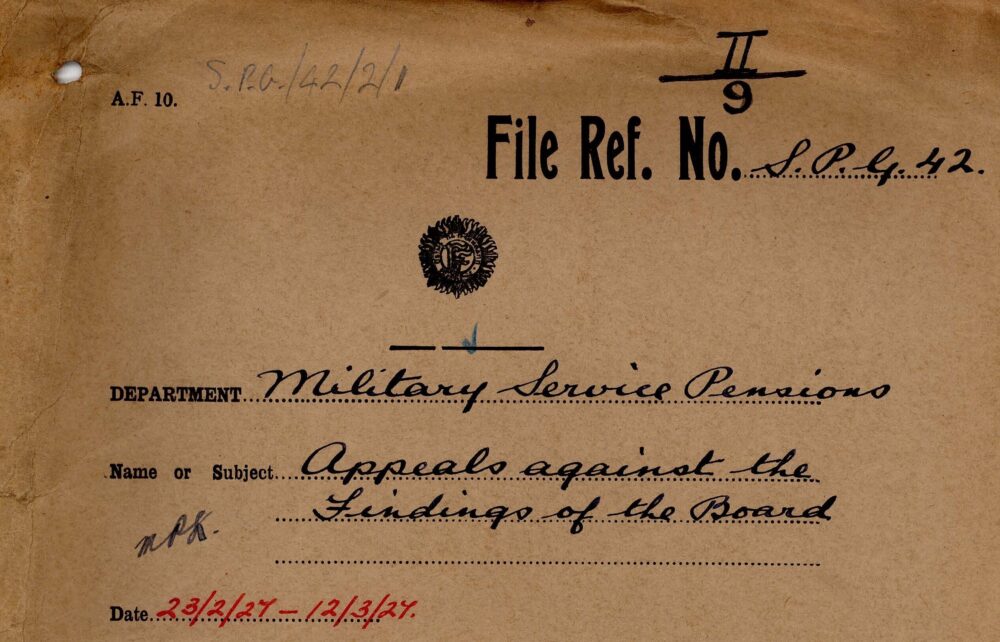 A.F. 10.
S.P.G./42/2/1
II
9
File Ref. No. S.P.G. 42.
DEPARTMENT Military Service Pensions
Name or Subject Appeals against the
Findings of the Board
Date 23/2/27 - 12/3/27.